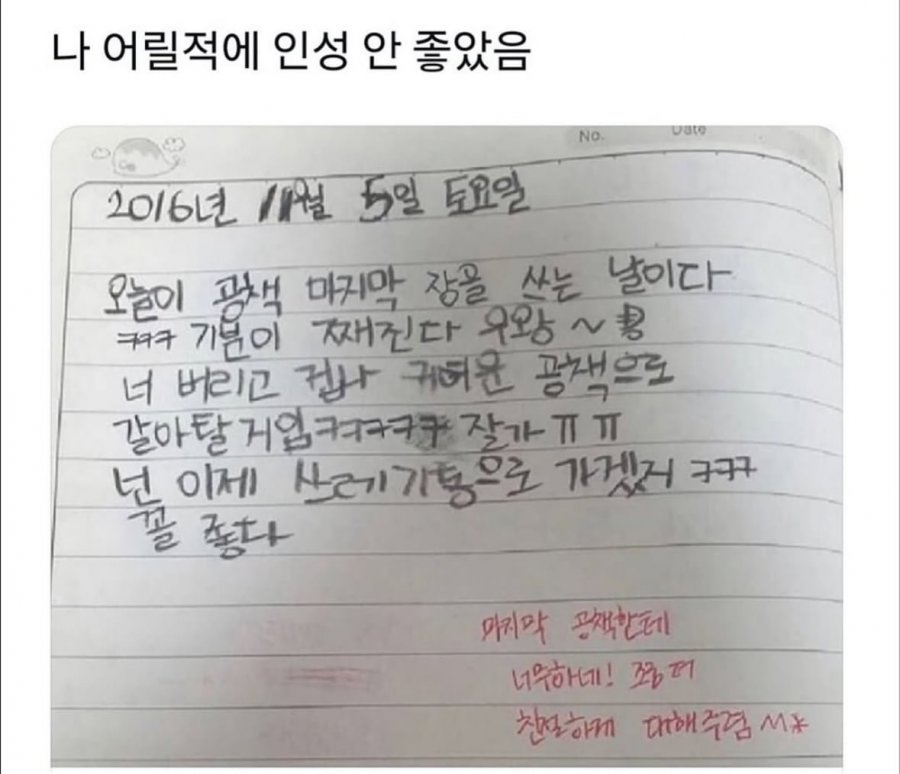 나 어릴적에 인성 안 좋았음
No. Date
2016년 11월 5일 토요일
오늘이 공책 마지막 장을 쓰는 날이다
ㅋㅋㅋ 기분이 째진다 우왕~
너 버리고 겁나 귀여운 공책으로
갈아탈거임ㅋㅋㅋㅋㅋ 잘가ㅠㅠ
넌 이제 쓰레기통으로 가겠지 ㅋㅋㅋ
꼴 좋다
마지막 공책한테
너무하네! 조금 더
친절하게 대해주렴^^*